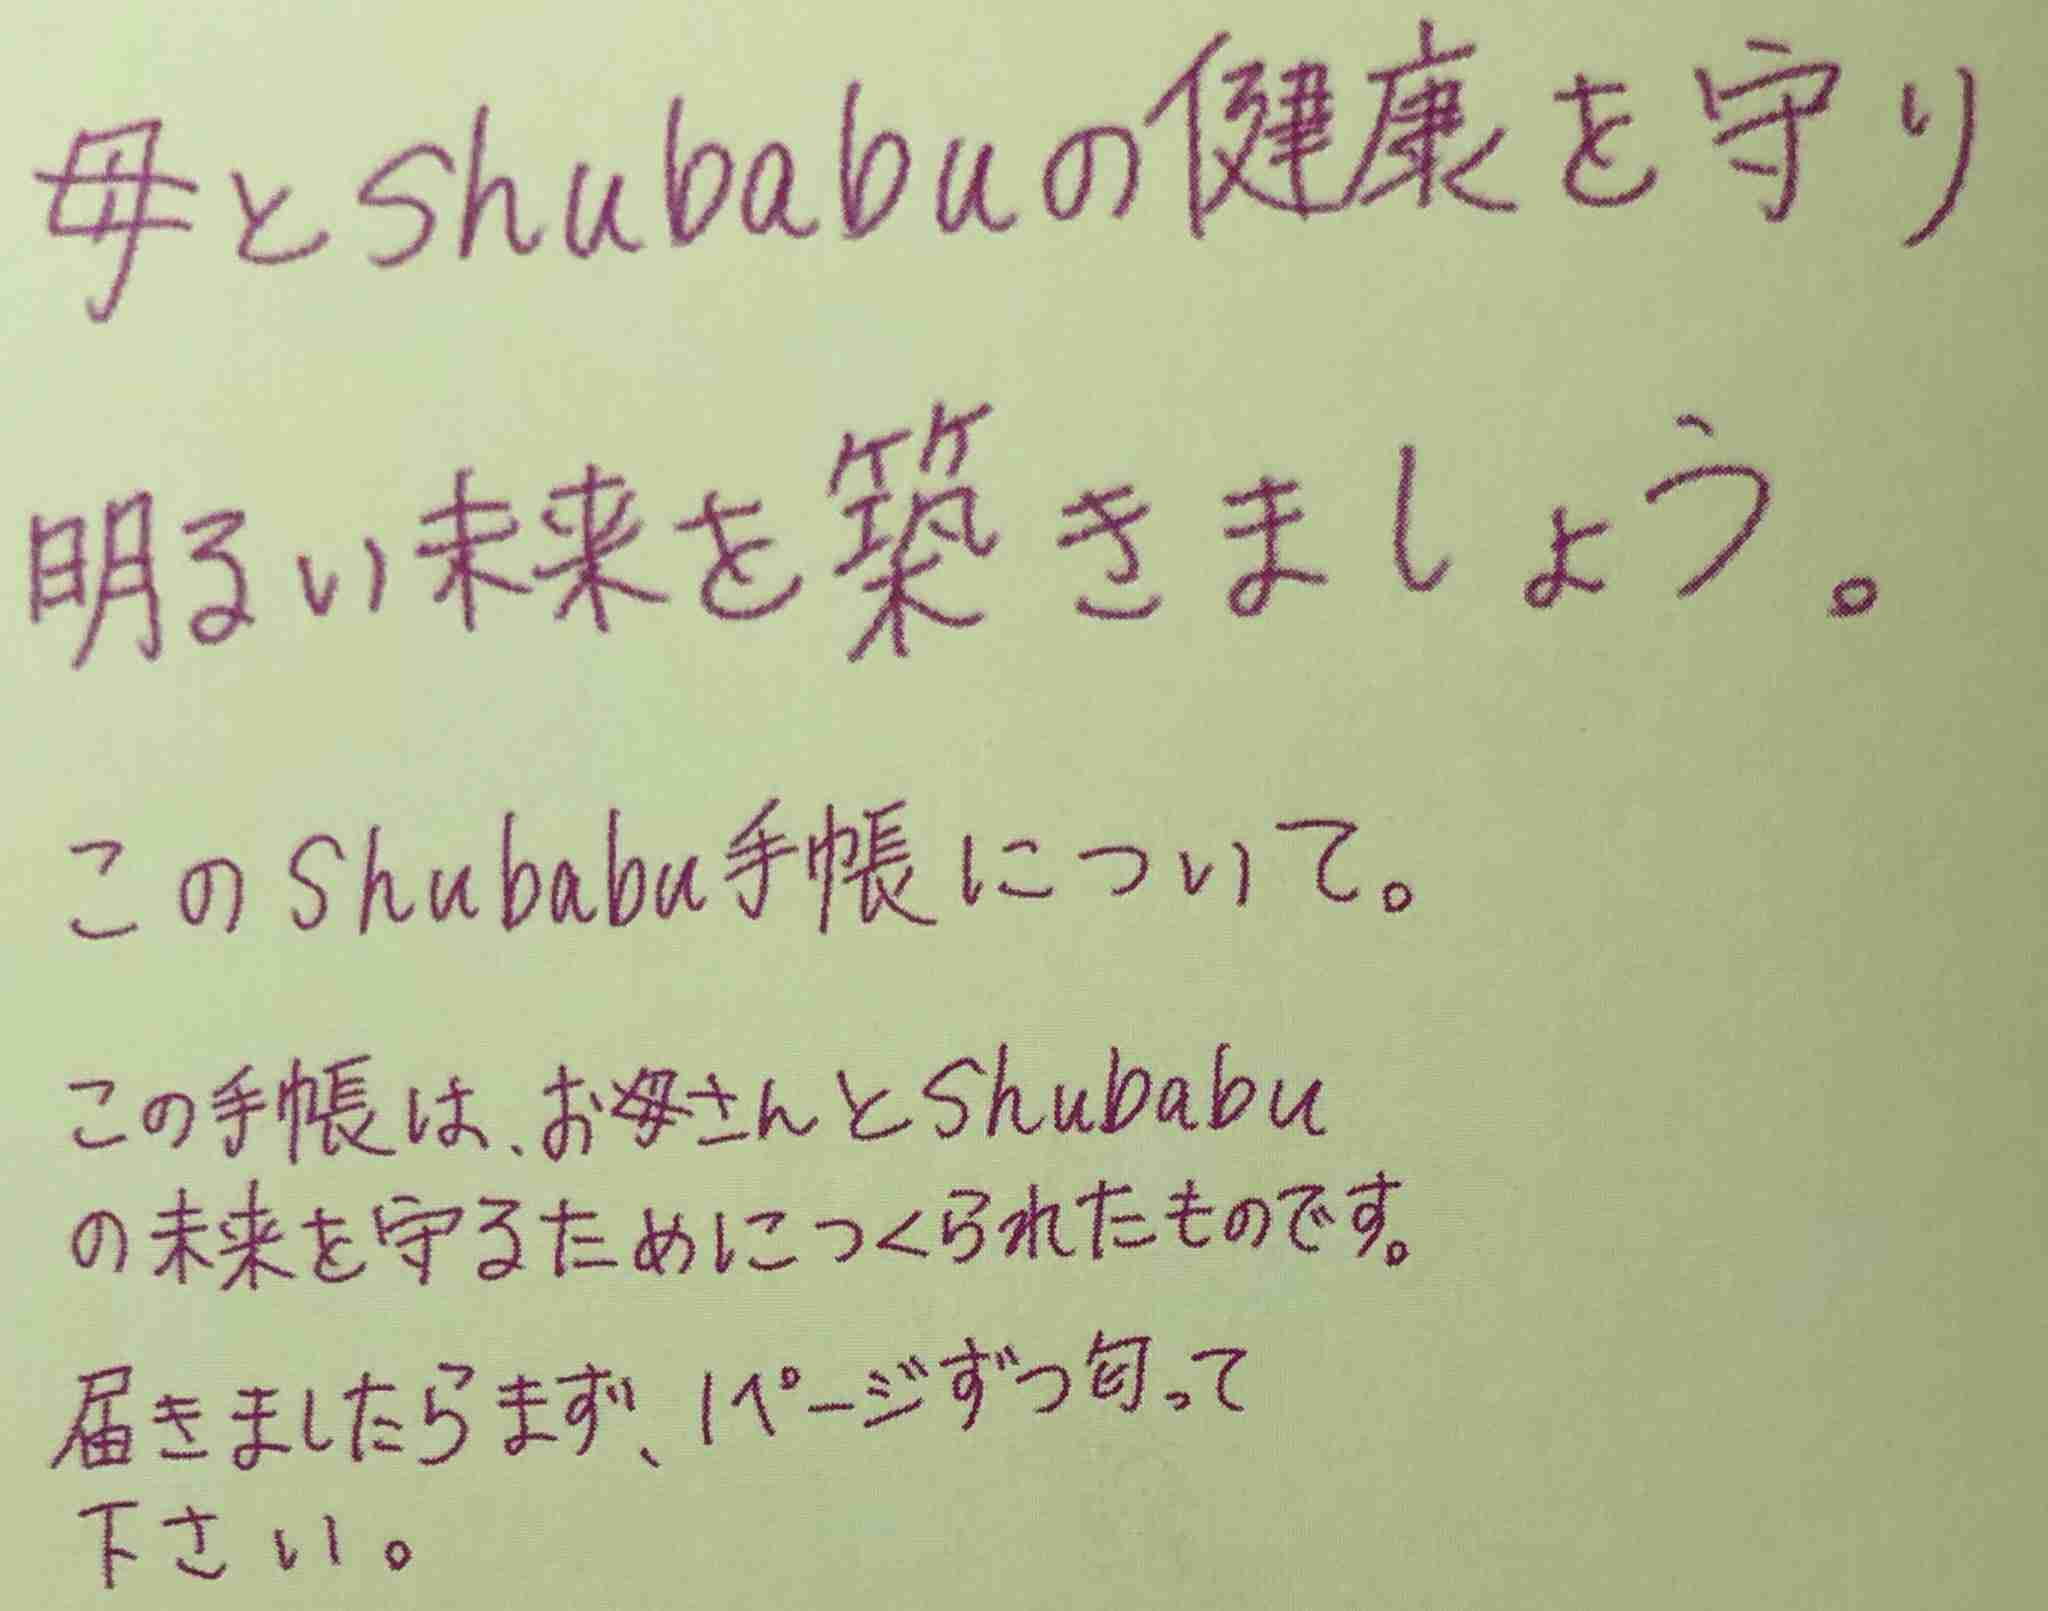 母とshubabuの健康を守り
明るい未来を築きましょう。
このshubabu手帳について。
この手帳は、お母さんとshubabu
の未来を守るためにつくられたものです。
届きましたらまず、1ページずつ匂って
下さい。